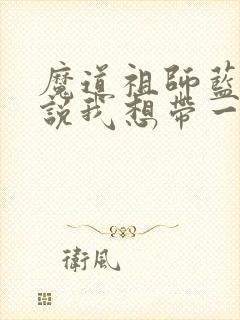 魔道祖師藍
說我想帶一
衛風